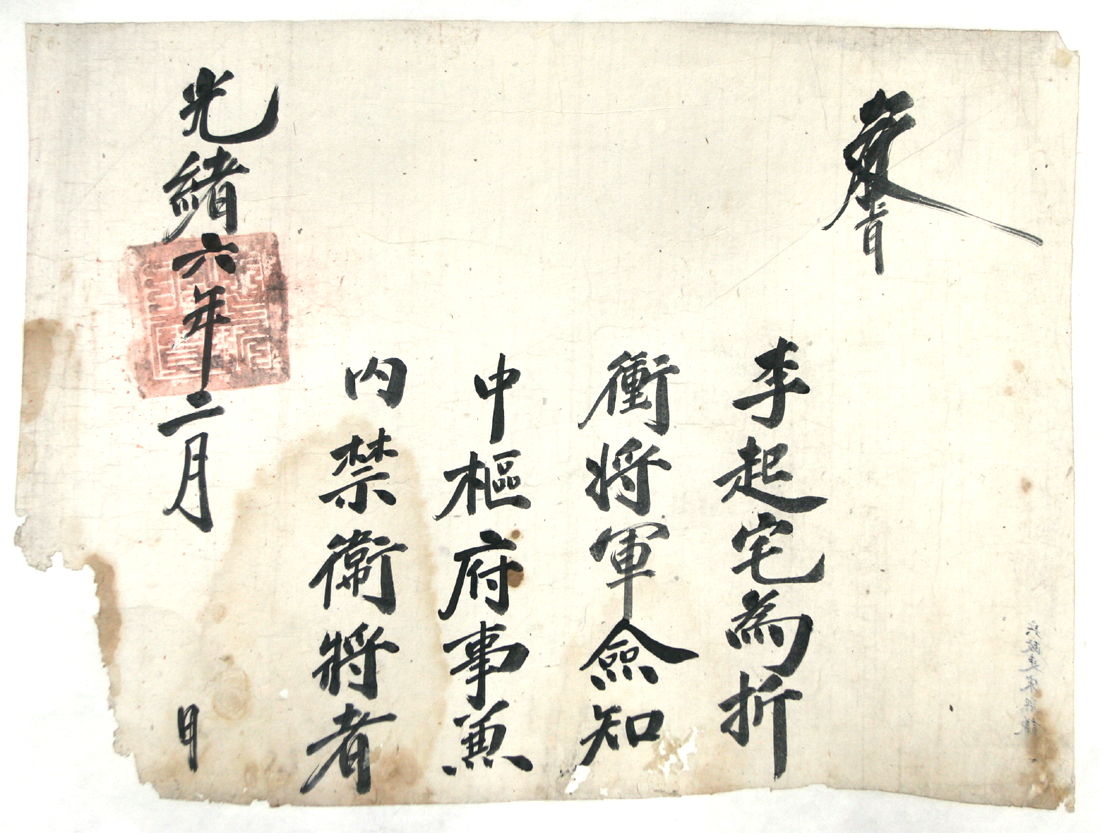 敎旨
李起宅為折
衝將軍僉知
中樞府事兼
內禁衛將者
光緒六年二月
日